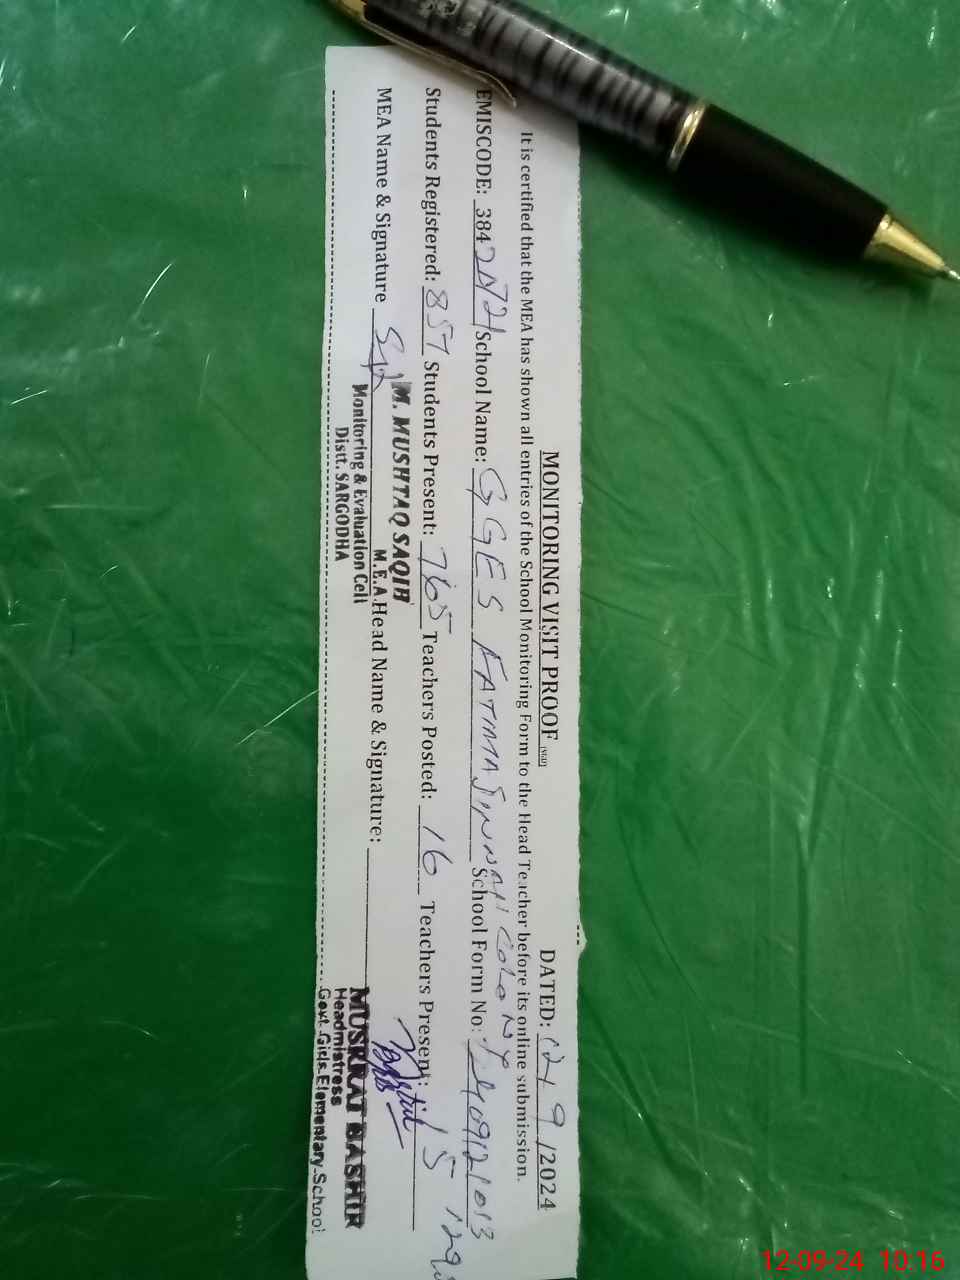 MONITORING VISIT PROOF DATED: 12/ 9 /2024
It is certified that the MEA has shown all entries of the School Monitoring Form to the Head Teacher before its online submission.
EMISCODE: 384 School Name: GGES FATIMA JINNAH COLONY School Form No:
Students Registered: 857 Students Present: 765 Teachers Posted: 16 Teachers Present: 15
MEA Name & Signature Head Name & Signature:
M. MUSHTAQ SAQIB
M.E.A.
Monitoring & Evaluation Cell
Distt. SARGODHA
MUSRRAT BASHIR
Headmistress
Govt. Girls Elementary School
12-09-24 10:16